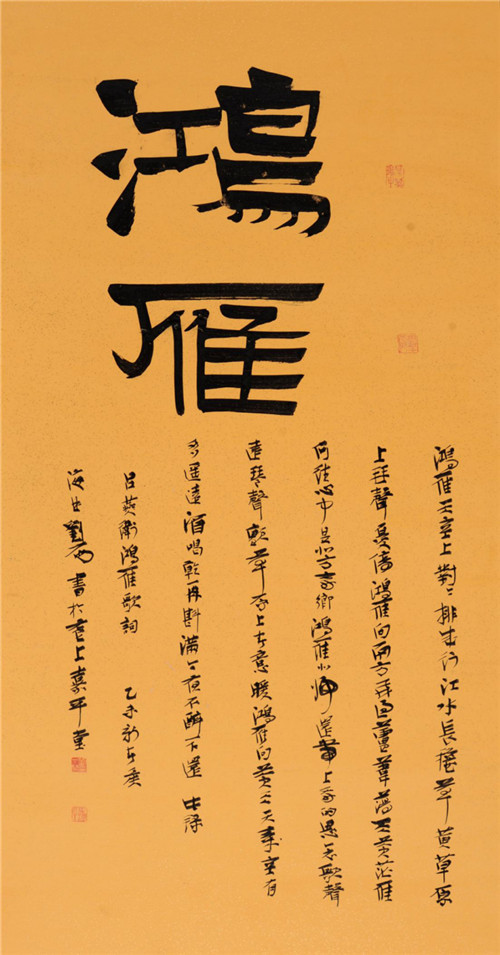 鴻雁
鴻雁天空上對〻排成行江水長穐草黃草原
上琴聲憂傷鴻雁向南方飛過蘆葦蕩天蒼茫雁
何往心中是北方家鄉鴻雁北歸還帶上我的思念歌聲
遠琴聲顫草原上春意暖鴻雁向蒼天天空有
多遥遠酒喝乾再斟滿今夜不醉不還
呂燕衛鴻雁歌詞 乙未初春
劉 書於 上嘉平堂